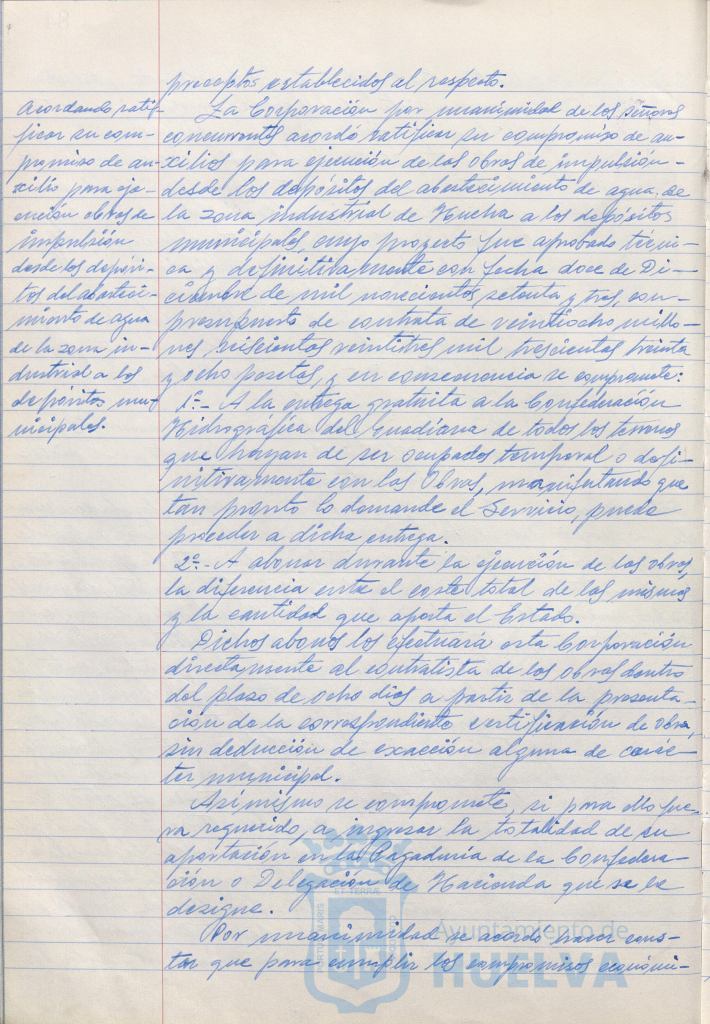 preceptos establecidos al respecto.
Acordando rati-
ficar su com-
promiso de au-
xilio para eje-
cución obras de
impulsión
desde los depósi-
tos del abasteci-
miento de agua
de la zona in-
dustrial a los
depósitos mu-
nicipales.
La Corporación por unanimidad de los señores
concurrentes acordó ratificar su compromiso de au-
xilios para ejecución de las obras de impulsión -
desde los depósitos del abastecimiento de agua, de
la zona industrial de Huelva a los depósitos
municipales, cuyo proyecto fue aprobado técni-
ca y definitivamente con fecha doce de Di-
ciembre de mil novecientos setenta y tres, con -
presupuesto de contrata de veintiocho millo-
nes seiscientos veintitres mil trescientos treinta
y ocho pesetas, y en consecuencia se compromete:
1º.- A la entrega gratuita a la Confederación
Hidrográfica del Guadiana de todos los terrenos
que hayan de ser ocupados temporal o defi-
nitivamente con las Obras, manifestando que
tan pronto lo demande el Servicio, puede
proceder a dicha entrega.
2º.- A abonar durante la ejecución de las obras,
la diferencia entre el coste total de las mismas
y la cantidad que aporta el Estado.
Dichos abonos los efectuará esta Corporación
directamente al contratista de las obras dentro
del plazo de ocho dias a partir de la presenta-
ción de la correspondiente certificación de obra,
sin deducción de exacción alguna de carác-
ter municipal.
Asimismo se compromete, si para ello fue-
ra requerido, a ingresar la totalidad de su
aportación en la Pagaduría de la Confedera-
ción o Delegación de Hacienda que se le
designe.
Por unanimidad se acordó hacer cons-
tar que para cumplir los compromisos económi-
Ayuntamiento de
HUELVA